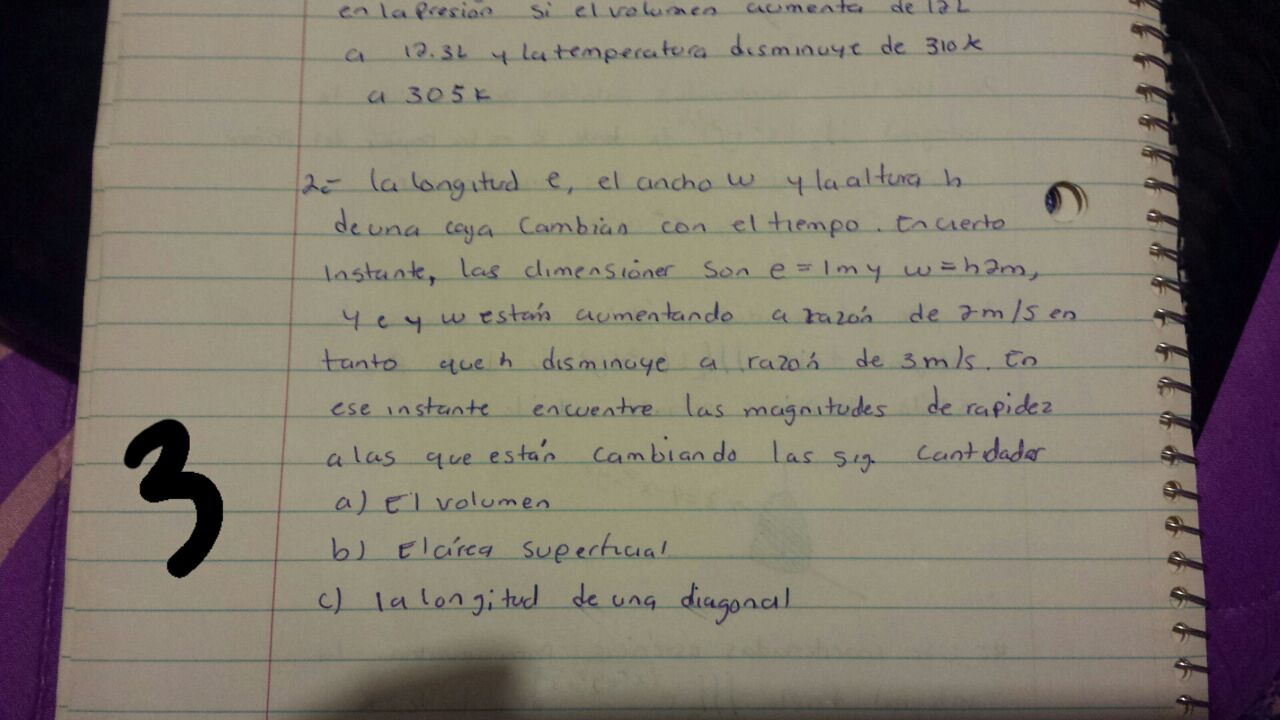 en la presión si el volumen aumenta de 12L
a 12.3L y la temperatura disminuye de 310k
a 305k
2.- la longitud e, el ancho w y la altura h
de una caja Cambian con el tiempo. En cierto
instante, las dimensiones son e=1m y w=h2m,
y e y w están aumentando a razón de 2m/s en
tanto que h disminuye a razón de 3m/s. En
ese instante encuentre las magnitudes de rapidez
a las que están cambiando las sig. cantidades
a) El volumen
b) El área superficial
c) la longitud de una diagonal
3